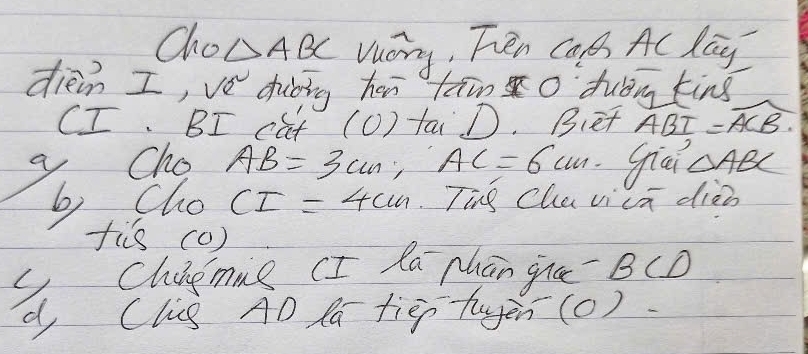 Cho △ABC vuông. Trên cạnh AC lấy
điểm I, vẽ đường tròn tâm O đường kính
CI. BI cắt (O) tại D. Biết ABI = ACB.
a, Cho AB = 3cm, AC = 6cm. Giải △ABC
b, Cho CI = 4cm. Tính chu vi và diện
tích (O)
c, Chứng minh CI là phân giác BCD
d, Cminh AD là tiếp tuyến (O).